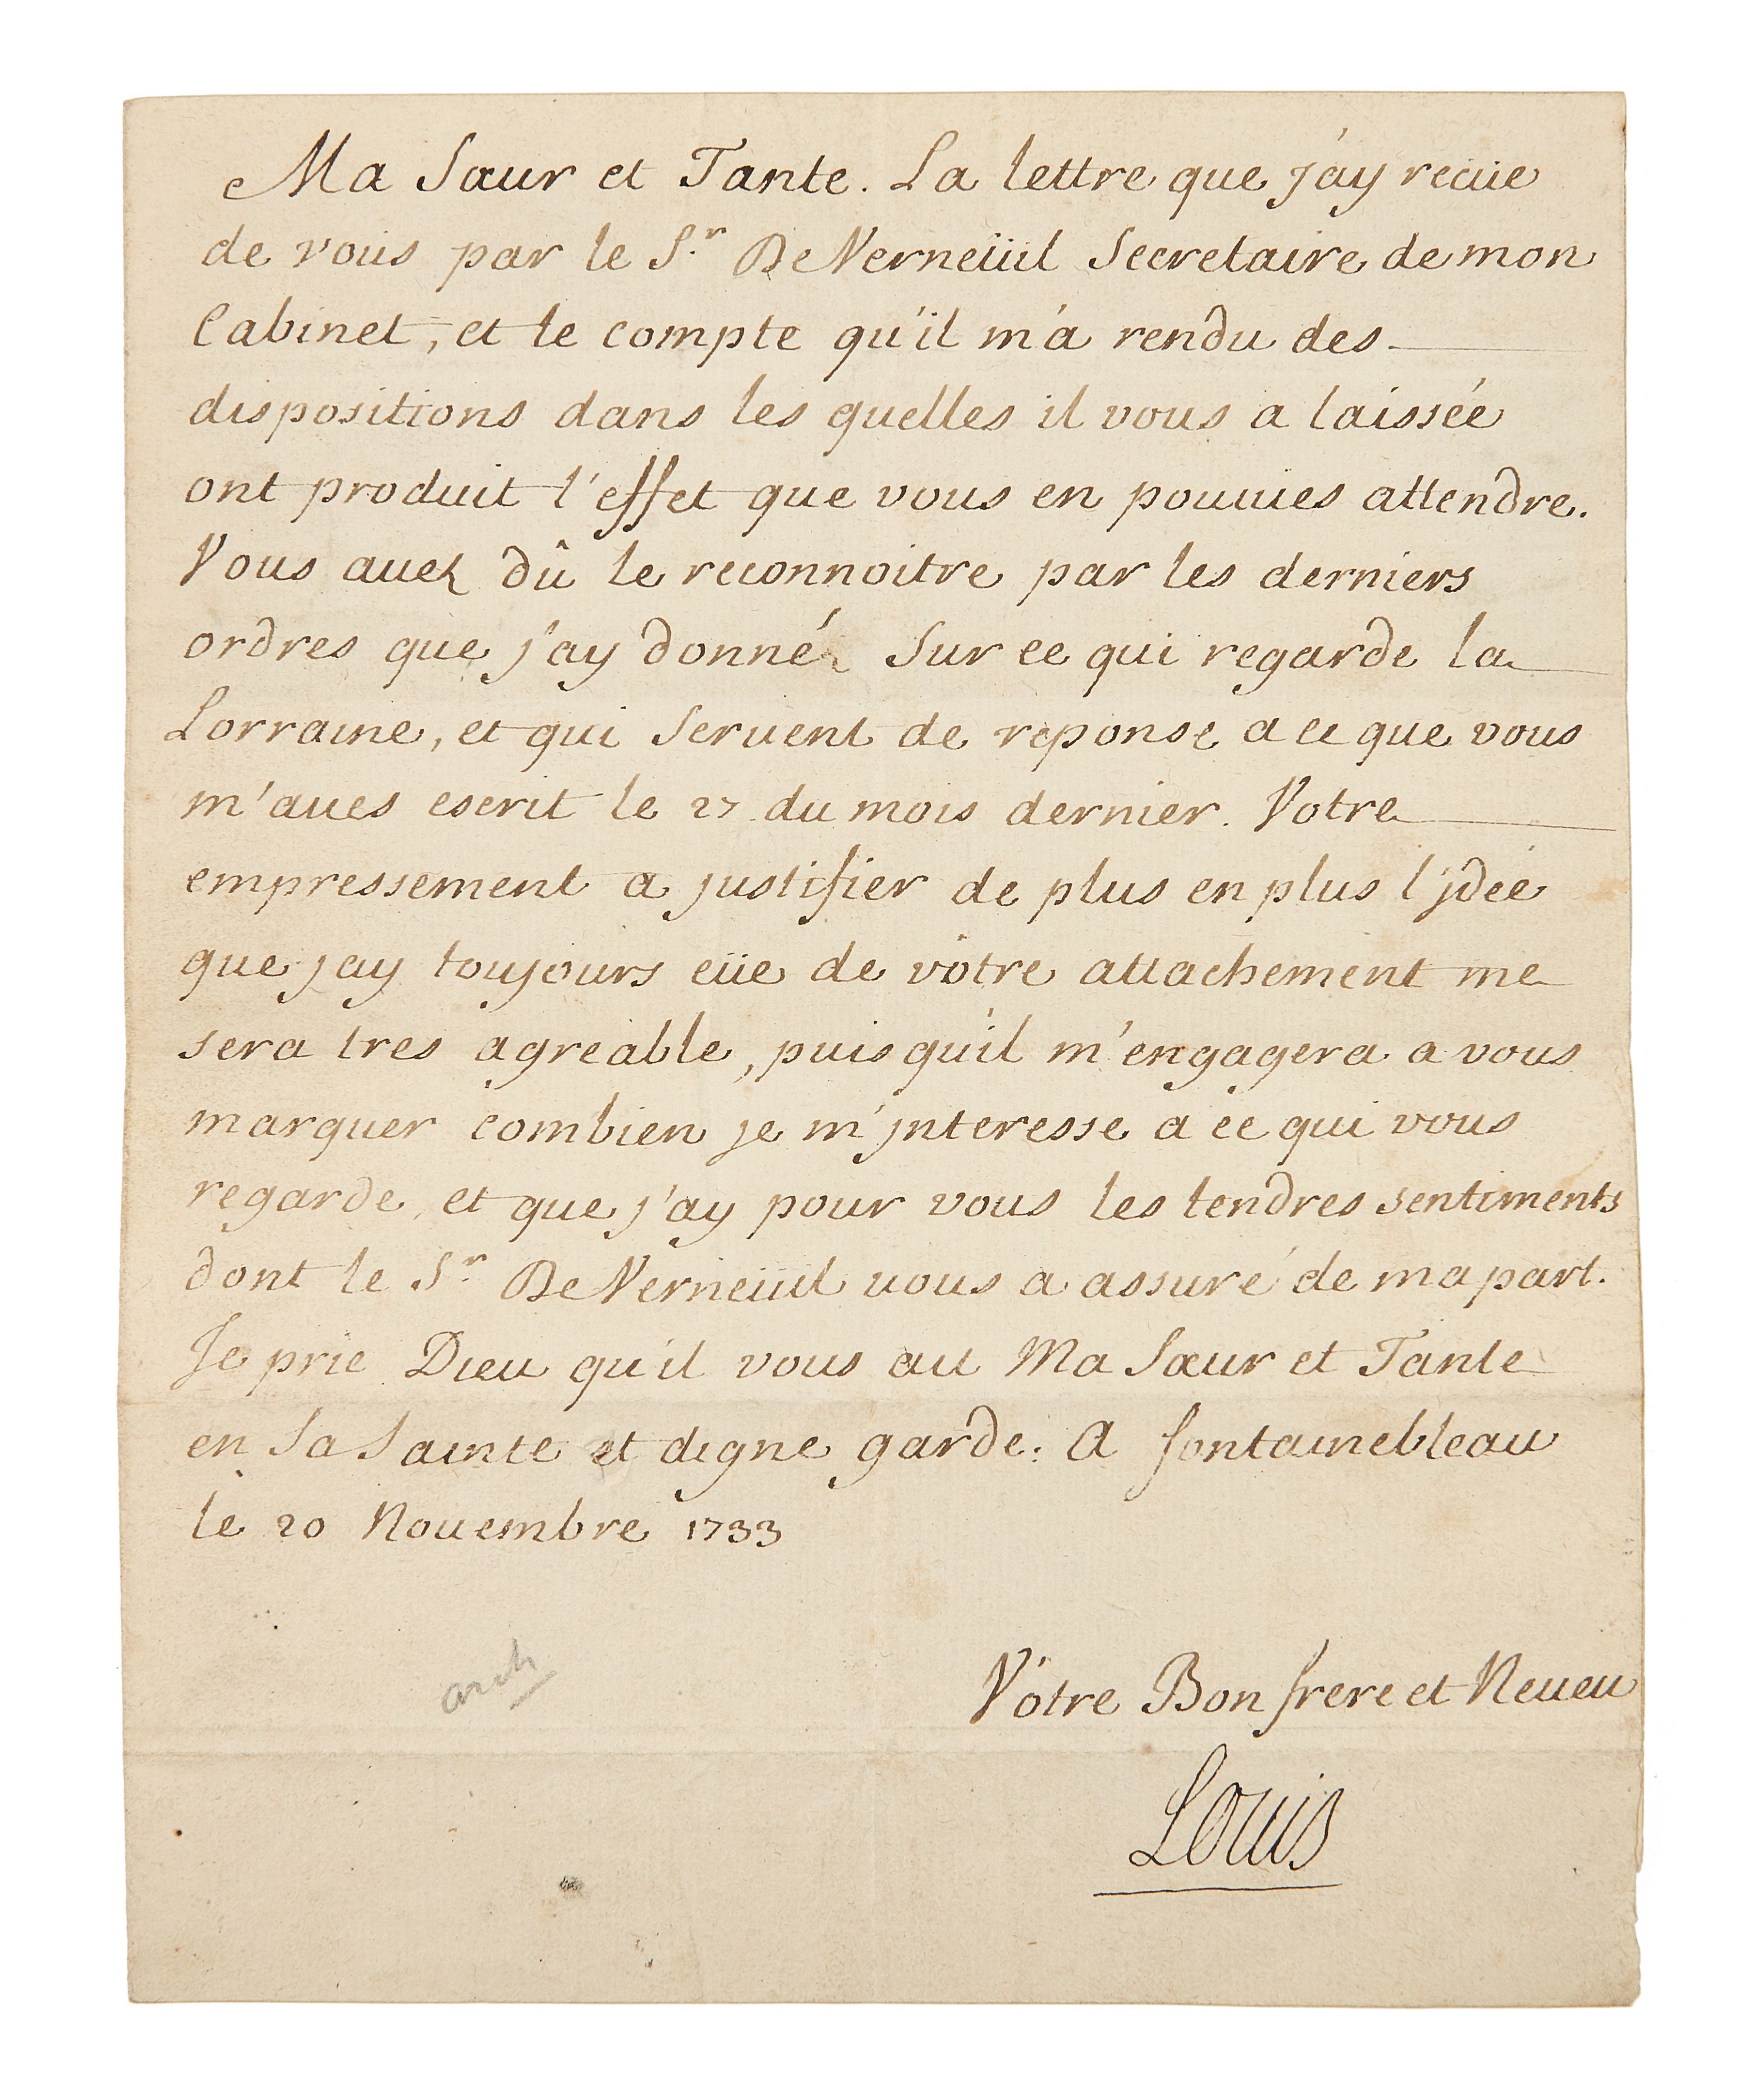 Ma Sœur et Tante. La lettre que j'ay recüe
de vous par le S.r De Verneüil Secretaire de mon
Cabinet, et le compte qu'il m'a rendu des
dispositions dans les quelles il vous a laissée
ont produit l'effet que vous en pouuies attendre.
Vous auez dû le reconnoitre par les derniers
ordres que j'ay donné Sur ce qui regarde la
Lorraine, et qui seruent de reponse a ce que vous
m'aues escrit le 27 du mois dernier. Votre
empressement a justifier de plus en plus l'jdée
que j'ay toujours eüe de vôtre attachement me
sera tres agreable, puis qu'il m'engagera a vous
marquer combien je m'jnteresse a ce qui vous
regarde, et que j'ay pour vous les tendres sentiments
dont le S.r De Verneüil uous a assuré de ma part.
Je prie Dieu qu'il vous ait Ma Sœur et Tante
en Sa Sainte et digne garde. A fontainebleau
le 20 Nouembre 1733
Vôtre Bon frere et Neueu
Louis